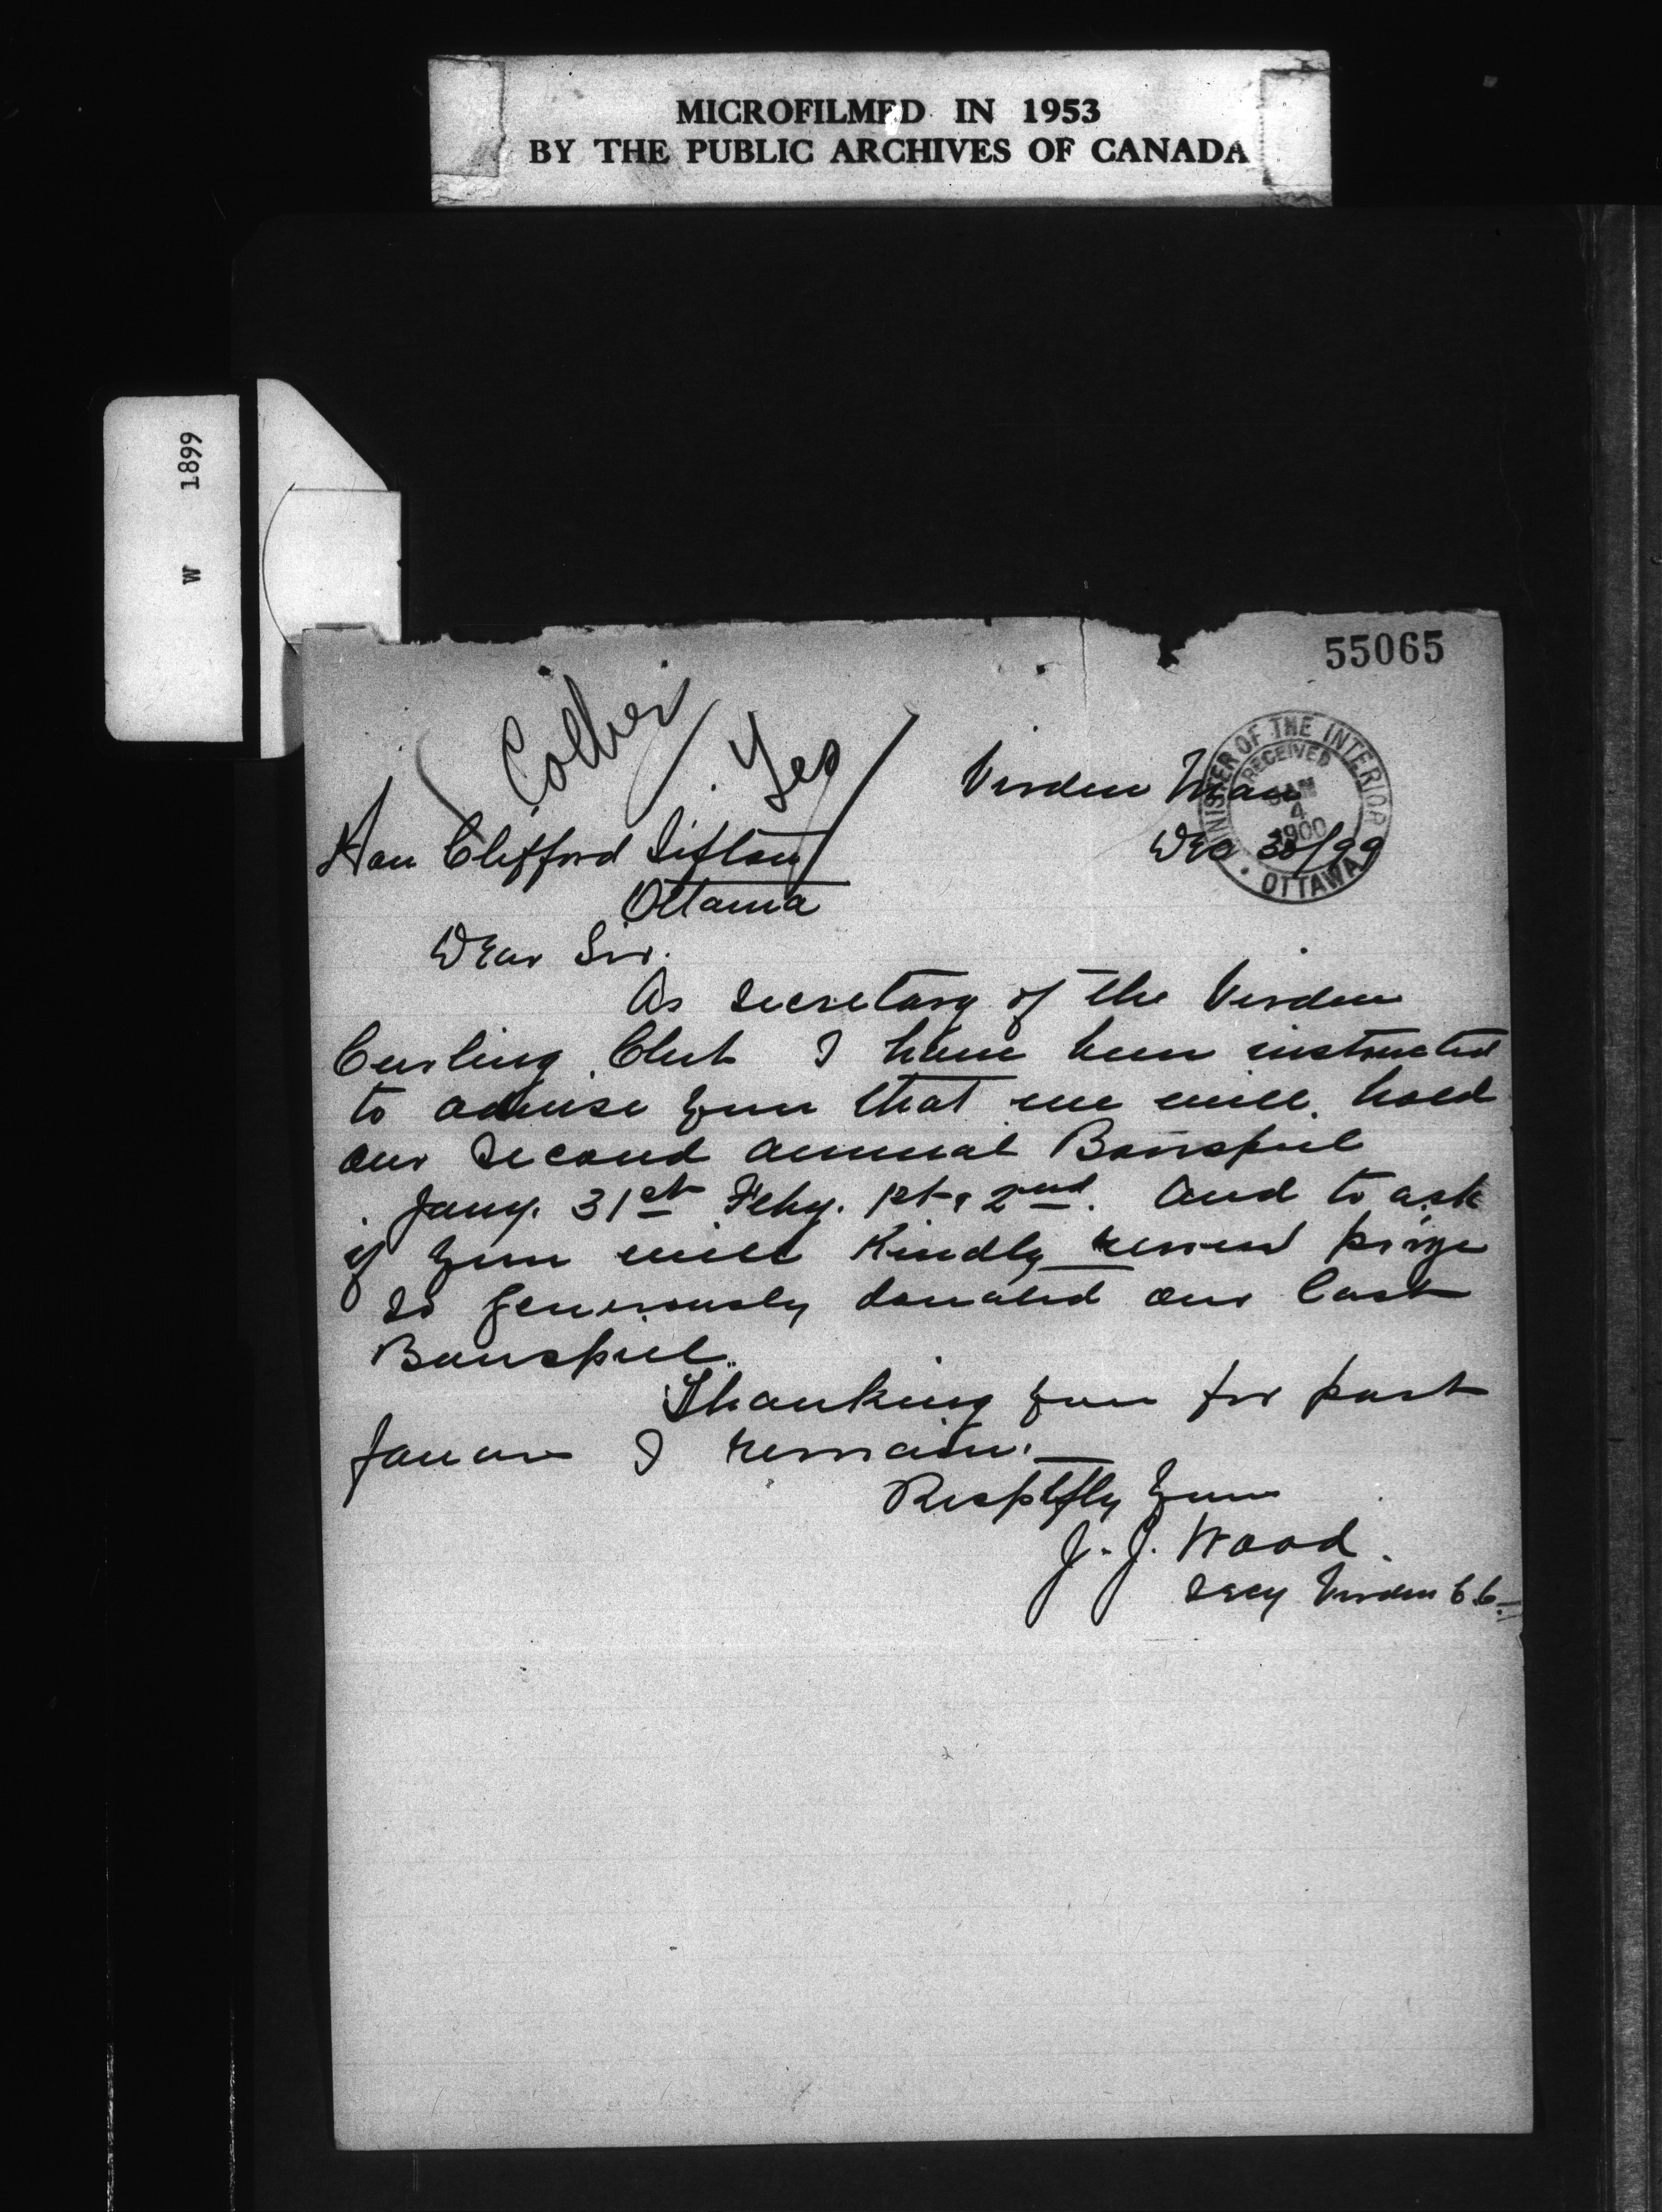 MICROFILMED IN 1953
BY THE PUBLIC ARCHIVES OF CANADA
W 1899
55065
Yes
MINISTER OF THE INTERIOR
RECEIVED
JAN
4
1900
OTTAWA
Virden Man
Dec 30/99
Hon Clifford Sifton
Ottawa
Dear Sir.
As Secretary of the Virden
Curling Club I have been instructed
to advise you that we will hold
our Second annual Bonspiel
Jany. 31st Feby. 1st & 2nd. And to ask
if you will Kindly renew prize
so generously donated our last
Bonspiel.
Thanking you for past
favours I remain.
Resptfly Yours
J. J. Wood.
Secy Virden C.C.